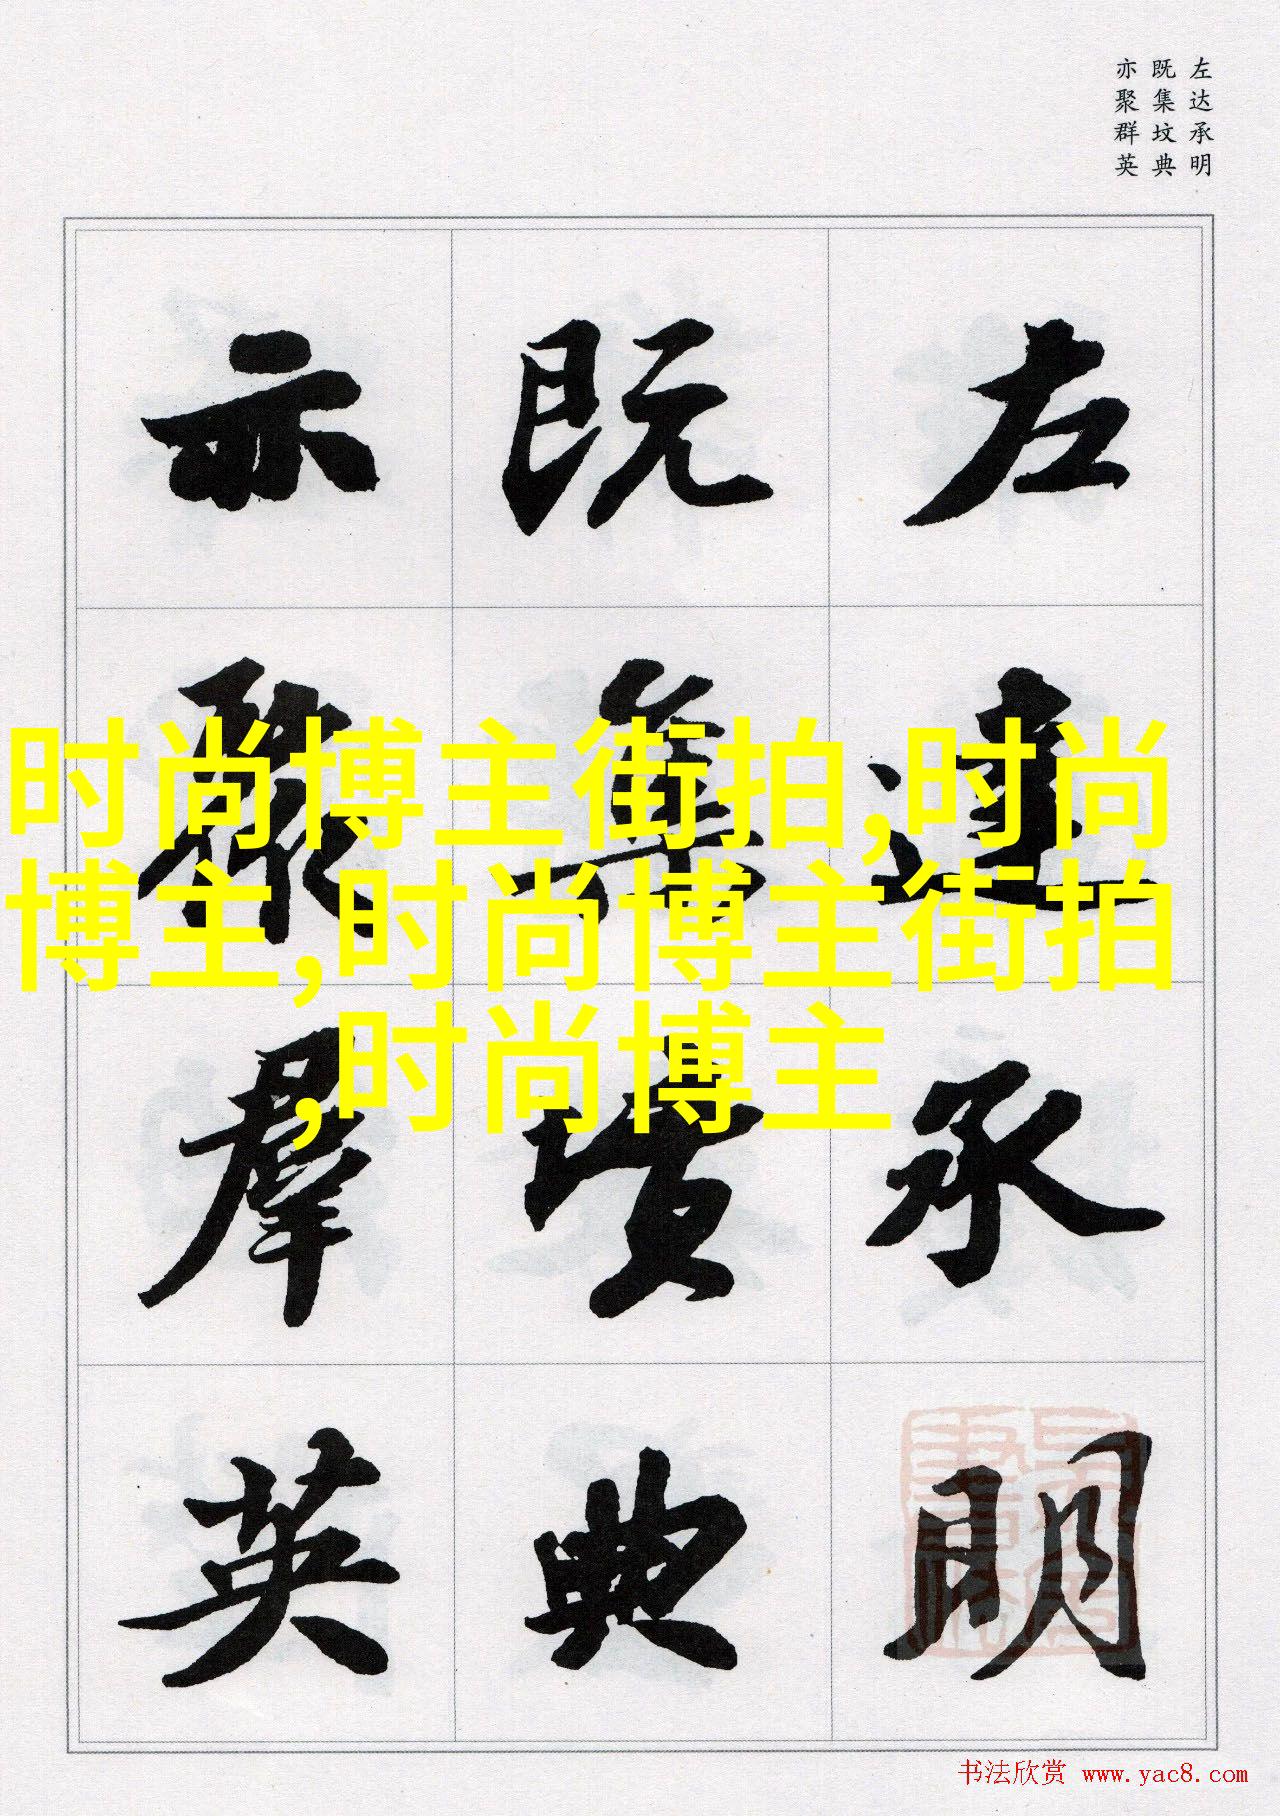 左达承明
既集坟典
亦聚群英
左達承明
既集墳典
亦聚羣英
时尚博主街拍,时尚
博主,时尚博主街拍
,时尚博主
书法欣赏 www.yac8.com